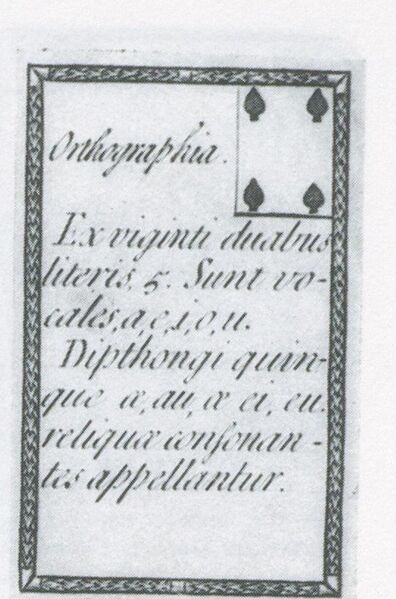 Orthographia.
Ex viginti duabus
literis, 5. Sunt vo-
cales, a, e, i, o, u.
Dipthongi quin-
que æ, au, œ ei, eu.
reliquæ conſonan-
tes appellantur.